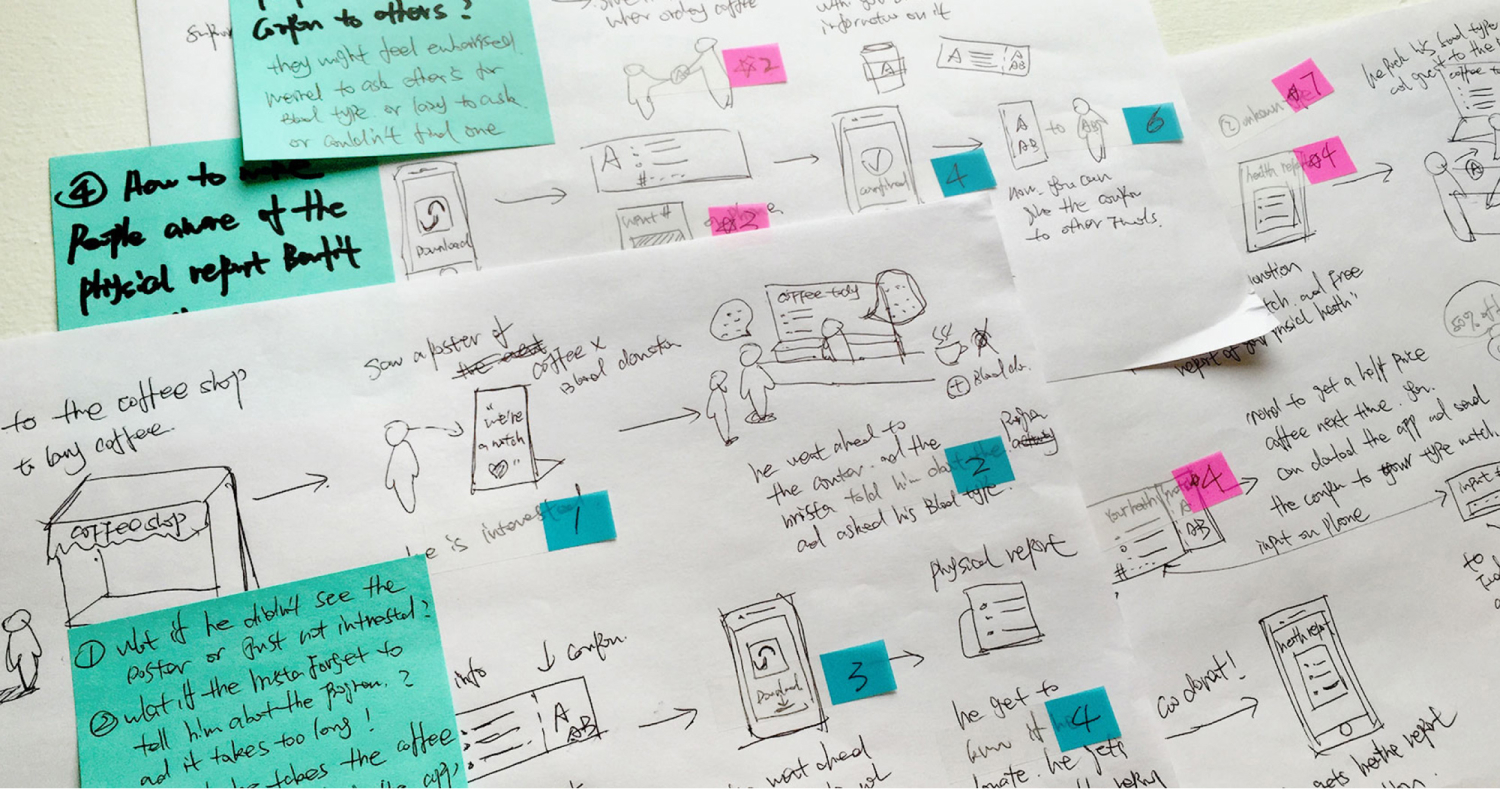 Coupon to others?
they might feel embarrised
weried to ask others for
Blood type. or lazy to ask.
or couldn't find one
④ How to
People aware of the
physical report Benifit
when ordering coffee
information on it
A
A
A
AB
#2
Download
A
#
want #
#2
confirmed
4
A
AB
to
AB
6
now. you can
give the coupon
to other friends.
② unknown type
#7
health report
#4
he pick his blood type
coffee to
A
to the coffee shop
to buy coffee.
coffee shop
saw a poster of
coffee x
Blood donation
"we're
a match
♡"
he is interested
1
coffee today
+ Blood do.
he went ahead to
the conter. and the
brista told him about the
and asked his Blood type.
2
① what if he didn't see the
poster or just not intrested?
② what if the brista forget to
tell him about the program.?
and it takes too long!
takes the coffee
the app,
info
coupon.
A
AB
Download
3
went ahead
physical report
he get to
4
donate. he gets
Go donat!
health report
gets healthe report
donation
match. and free
report of your physical heath"
50% off
#4
Your health
AB
#
input on phone
to get a half price
coffee next time. you
can download the app and send
the coupon to your type match.
input
to